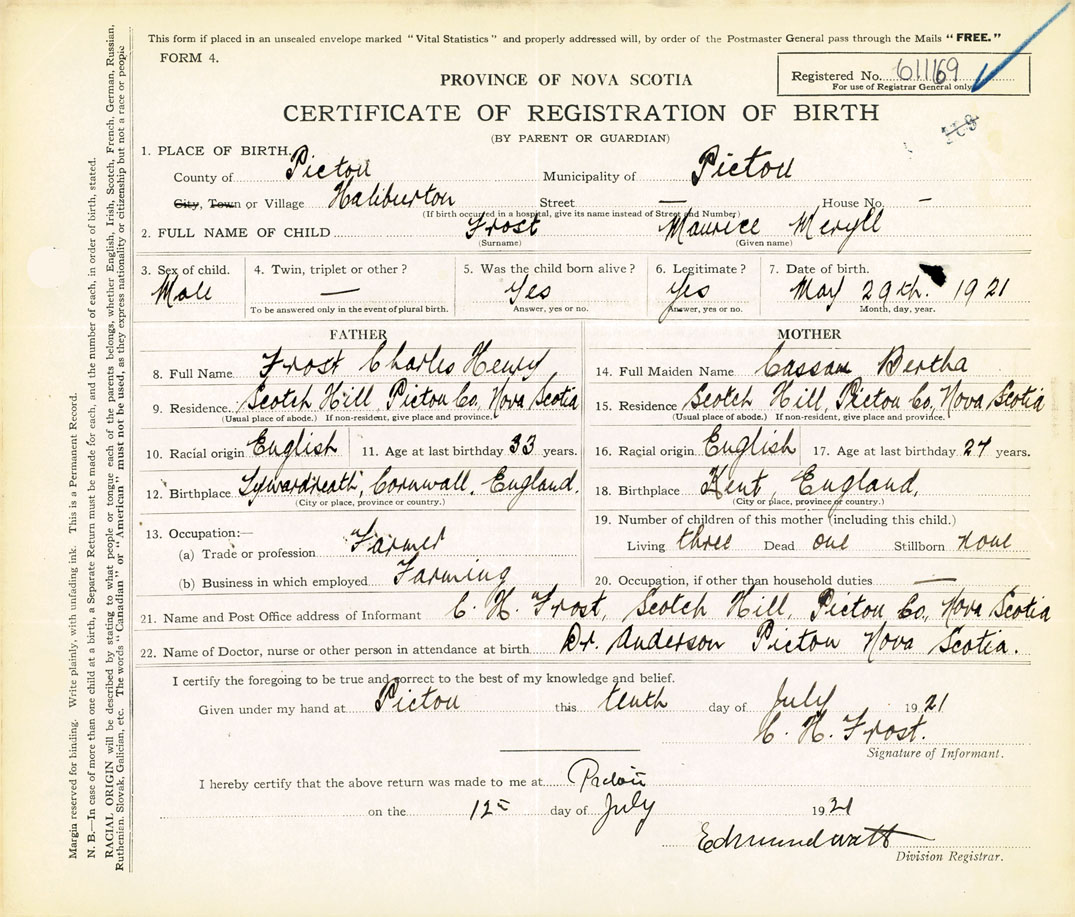 This form if placed in an unsealed envelope marked "Vital Statistics" and properly addressed will, by order of the Postmaster General pass through the Mails "FREE."
FORM 4.
Registered No. 611169
For use of Registrar General only
PROVINCE OF NOVA SCOTIA
CERTIFICATE OF REGISTRATION OF BIRTH
(BY PARENT OR GUARDIAN)
1. PLACE OF BIRTH.
County of Pictou Municipality of Pictou
City, Town or Village Haliburton Street — House No. —
(If birth occurred in a hospital, give its name instead of Street and Number)
2. FULL NAME OF CHILD Frost Maurice Meryll
(Surname) (Given name)
3. Sex of child. 4. Twin, triplet or other? 5. Was the child born alive? 6. Legitimate? 7. Date of birth.
Male — Yes Yes May 29th. 1921
To be answered only in the event of plural birth. Answer, yes or no. Answer, yes or no. Month, day, year.
FATHER MOTHER
8. Full Name Frost Charles Henry 14. Full Maiden Name Bertha
9. Residence. Scotch Hill, Pictou Co, Nova Scotia 15. Residence Scotch Hill, Pictou Co, Nova Scotia
(Usual place of abode.) If non-resident, give place and province. (Usual place of abode.) If non-resident, give place and province.
10. Racial origin English 11. Age at last birthday 33 years. 16. Racial origin English 17. Age at last birthday 27 years.
12. Birthplace Tywardreath, Cornwall, England. 18. Birthplace Kent England,
(City or place, province or country.) (City or place, province or country.)
13. Occupation:— 19. Number of children of this mother (including this child.)
(a) Trade or profession Farmer Living three Dead one Stillborn none
(b) Business in which employed Farming 20. Occupation, if other than household duties —
21. Name and Post Office address of Informant C. H. Frost, Scotch Hill, Pictou Co, Nova Scotia
22. Name of Doctor, nurse or other person in attendance at birth Dr. Anderson Pictou Nova Scotia.
I certify the foregoing to be true and correct to the best of my knowledge and belief.
Given under my hand at Pictou this tenth day of July 1921
C. H. Frost.
Signature of Informant.
I hereby certify that the above return was made to me at Pictou
on the 12 day of July 1921
Edmund Watt
Division Registrar.
Margin reserved for binding. Write plainly, with unfading ink. This is a Permanent Record.
N. B.—In case of more than one child at a birth, a Separate Return must be made for each, and the number of each, in order of birth, stated.
RACIAL ORIGIN will be described by stating to what people or tongue each of the parents belongs, whether English, Irish, Scotch, French, German, Russian,
Ruthenian, Slovak, Galician, etc. The words "Canadian" or "American" must not be used, as they express nationality or citizenship but not a race or people